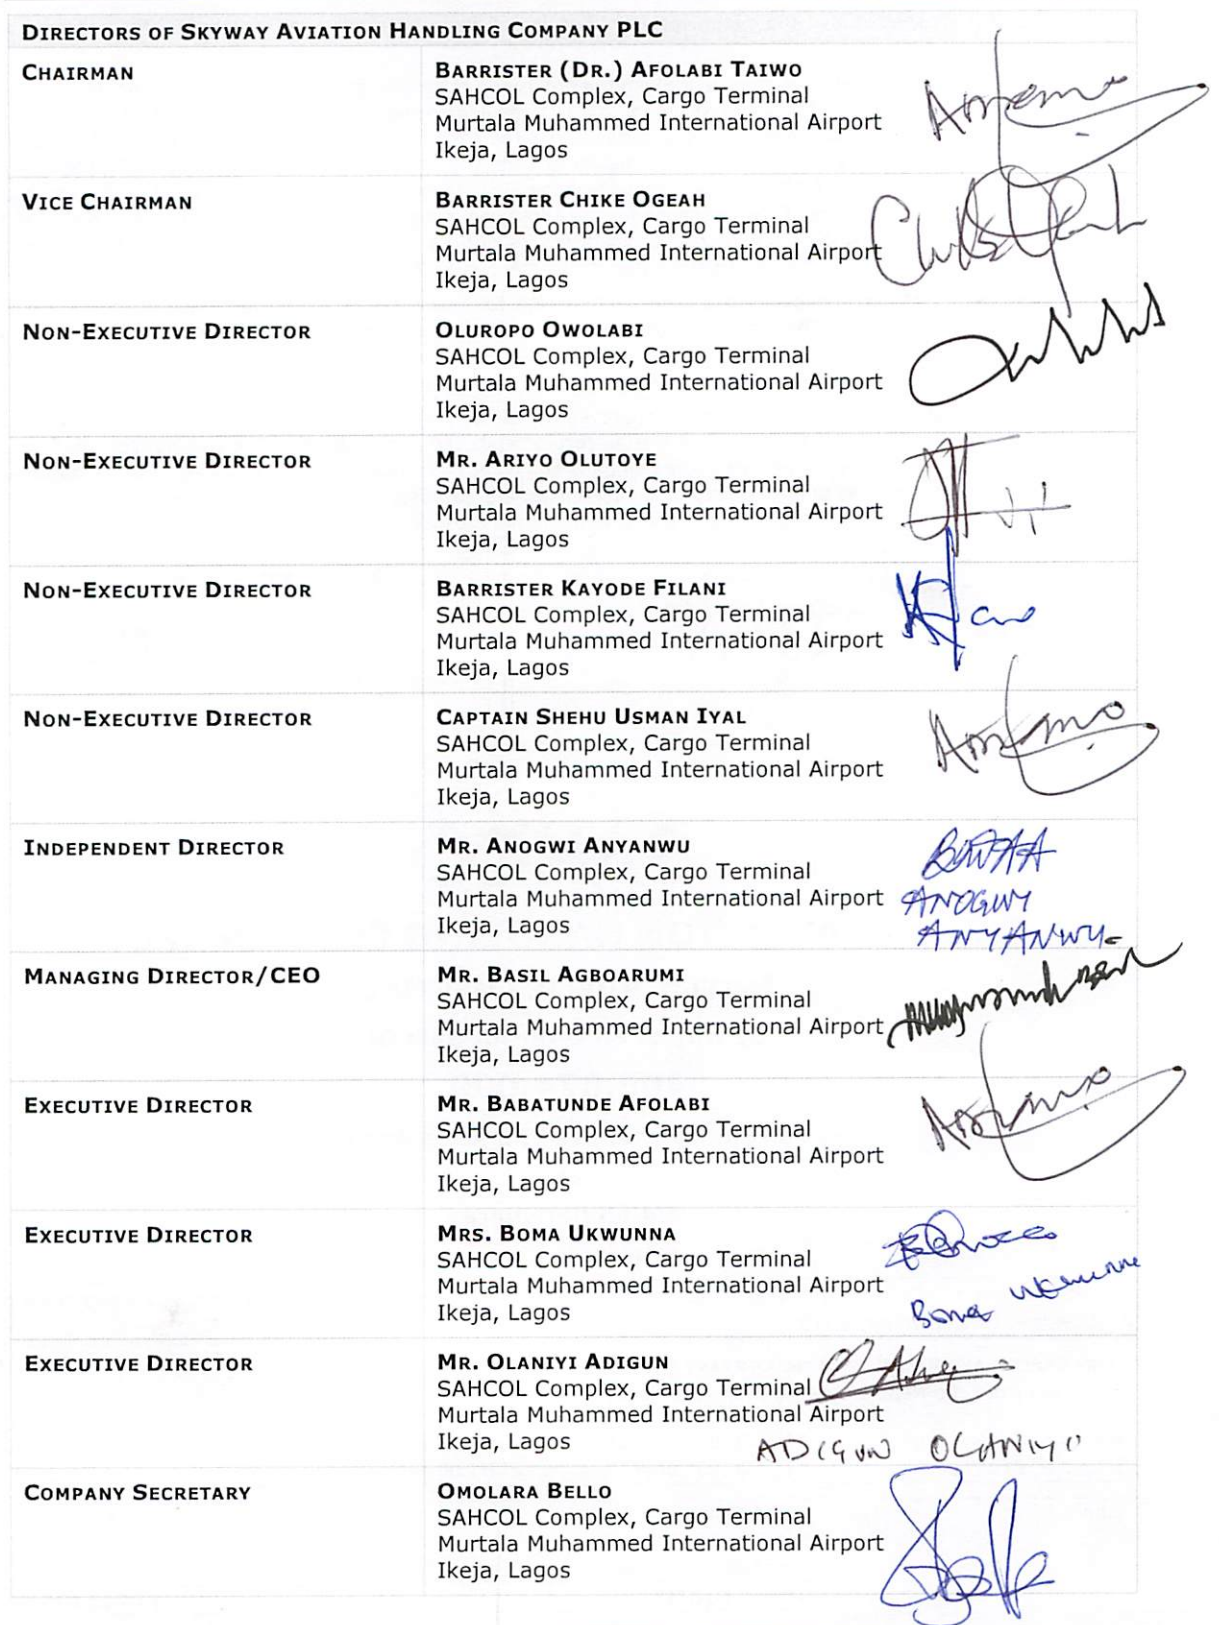 DIRECTORS OF SKYWAY AVIATION HANDLING COMPANY PLC
CHAIRMAN
BARRISTER (DR.) AFOLABI TAIWO
SAHCOL Complex, Cargo Terminal
Murtala Muhammed International Airport
Ikeja, Lagos
VICE CHAIRMAN
BARRISTER CHIKE OGEAH
SAHCOL Complex, Cargo Terminal
Murtala Muhammed International Airport
Ikeja, Lagos
NON-EXECUTIVE DIRECTOR
OLUROPO OWOLABI
SAHCOL Complex, Cargo Terminal
Murtala Muhammed International Airport
Ikeja, Lagos
NON-EXECUTIVE DIRECTOR
MR. ARIYO OLUTOYE
SAHCOL Complex, Cargo Terminal
Murtala Muhammed International Airport
Ikeja, Lagos
NON-EXECUTIVE DIRECTOR
BARRISTER KAYODE FILANI
SAHCOL Complex, Cargo Terminal
Murtala Muhammed International Airport
Ikeja, Lagos
NON-EXECUTIVE DIRECTOR
CAPTAIN SHEHU USMAN IYAL
SAHCOL Complex, Cargo Terminal
Murtala Muhammed International Airport
Ikeja, Lagos
INDEPENDENT DIRECTOR
MR. ANOGWI ANYANWU
SAHCOL Complex, Cargo Terminal
Murtala Muhammed International Airport
Ikeja, Lagos
ANOGWY
ANYANWU
MANAGING DIRECTOR/CEO
MR. BASIL AGBOARUMI
SAHCOL Complex, Cargo Terminal
Murtala Muhammed International Airport
Ikeja, Lagos
EXECUTIVE DIRECTOR
MR. BABATUNDE AFOLABI
SAHCOL Complex, Cargo Terminal
Murtala Muhammed International Airport
Ikeja, Lagos
EXECUTIVE DIRECTOR
MRS. BOMA UKWUNNA
SAHCOL Complex, Cargo Terminal
Murtala Muhammed International Airport
Ikeja, Lagos
Boma Ukwunna
EXECUTIVE DIRECTOR
MR. OLANIYI ADIGUN
SAHCOL Complex, Cargo Terminal
Murtala Muhammed International Airport
Ikeja, Lagos
ADIGUN OLANIYI
COMPANY SECRETARY
OMOLARA BELLO
SAHCOL Complex, Cargo Terminal
Murtala Muhammed International Airport
Ikeja, Lagos